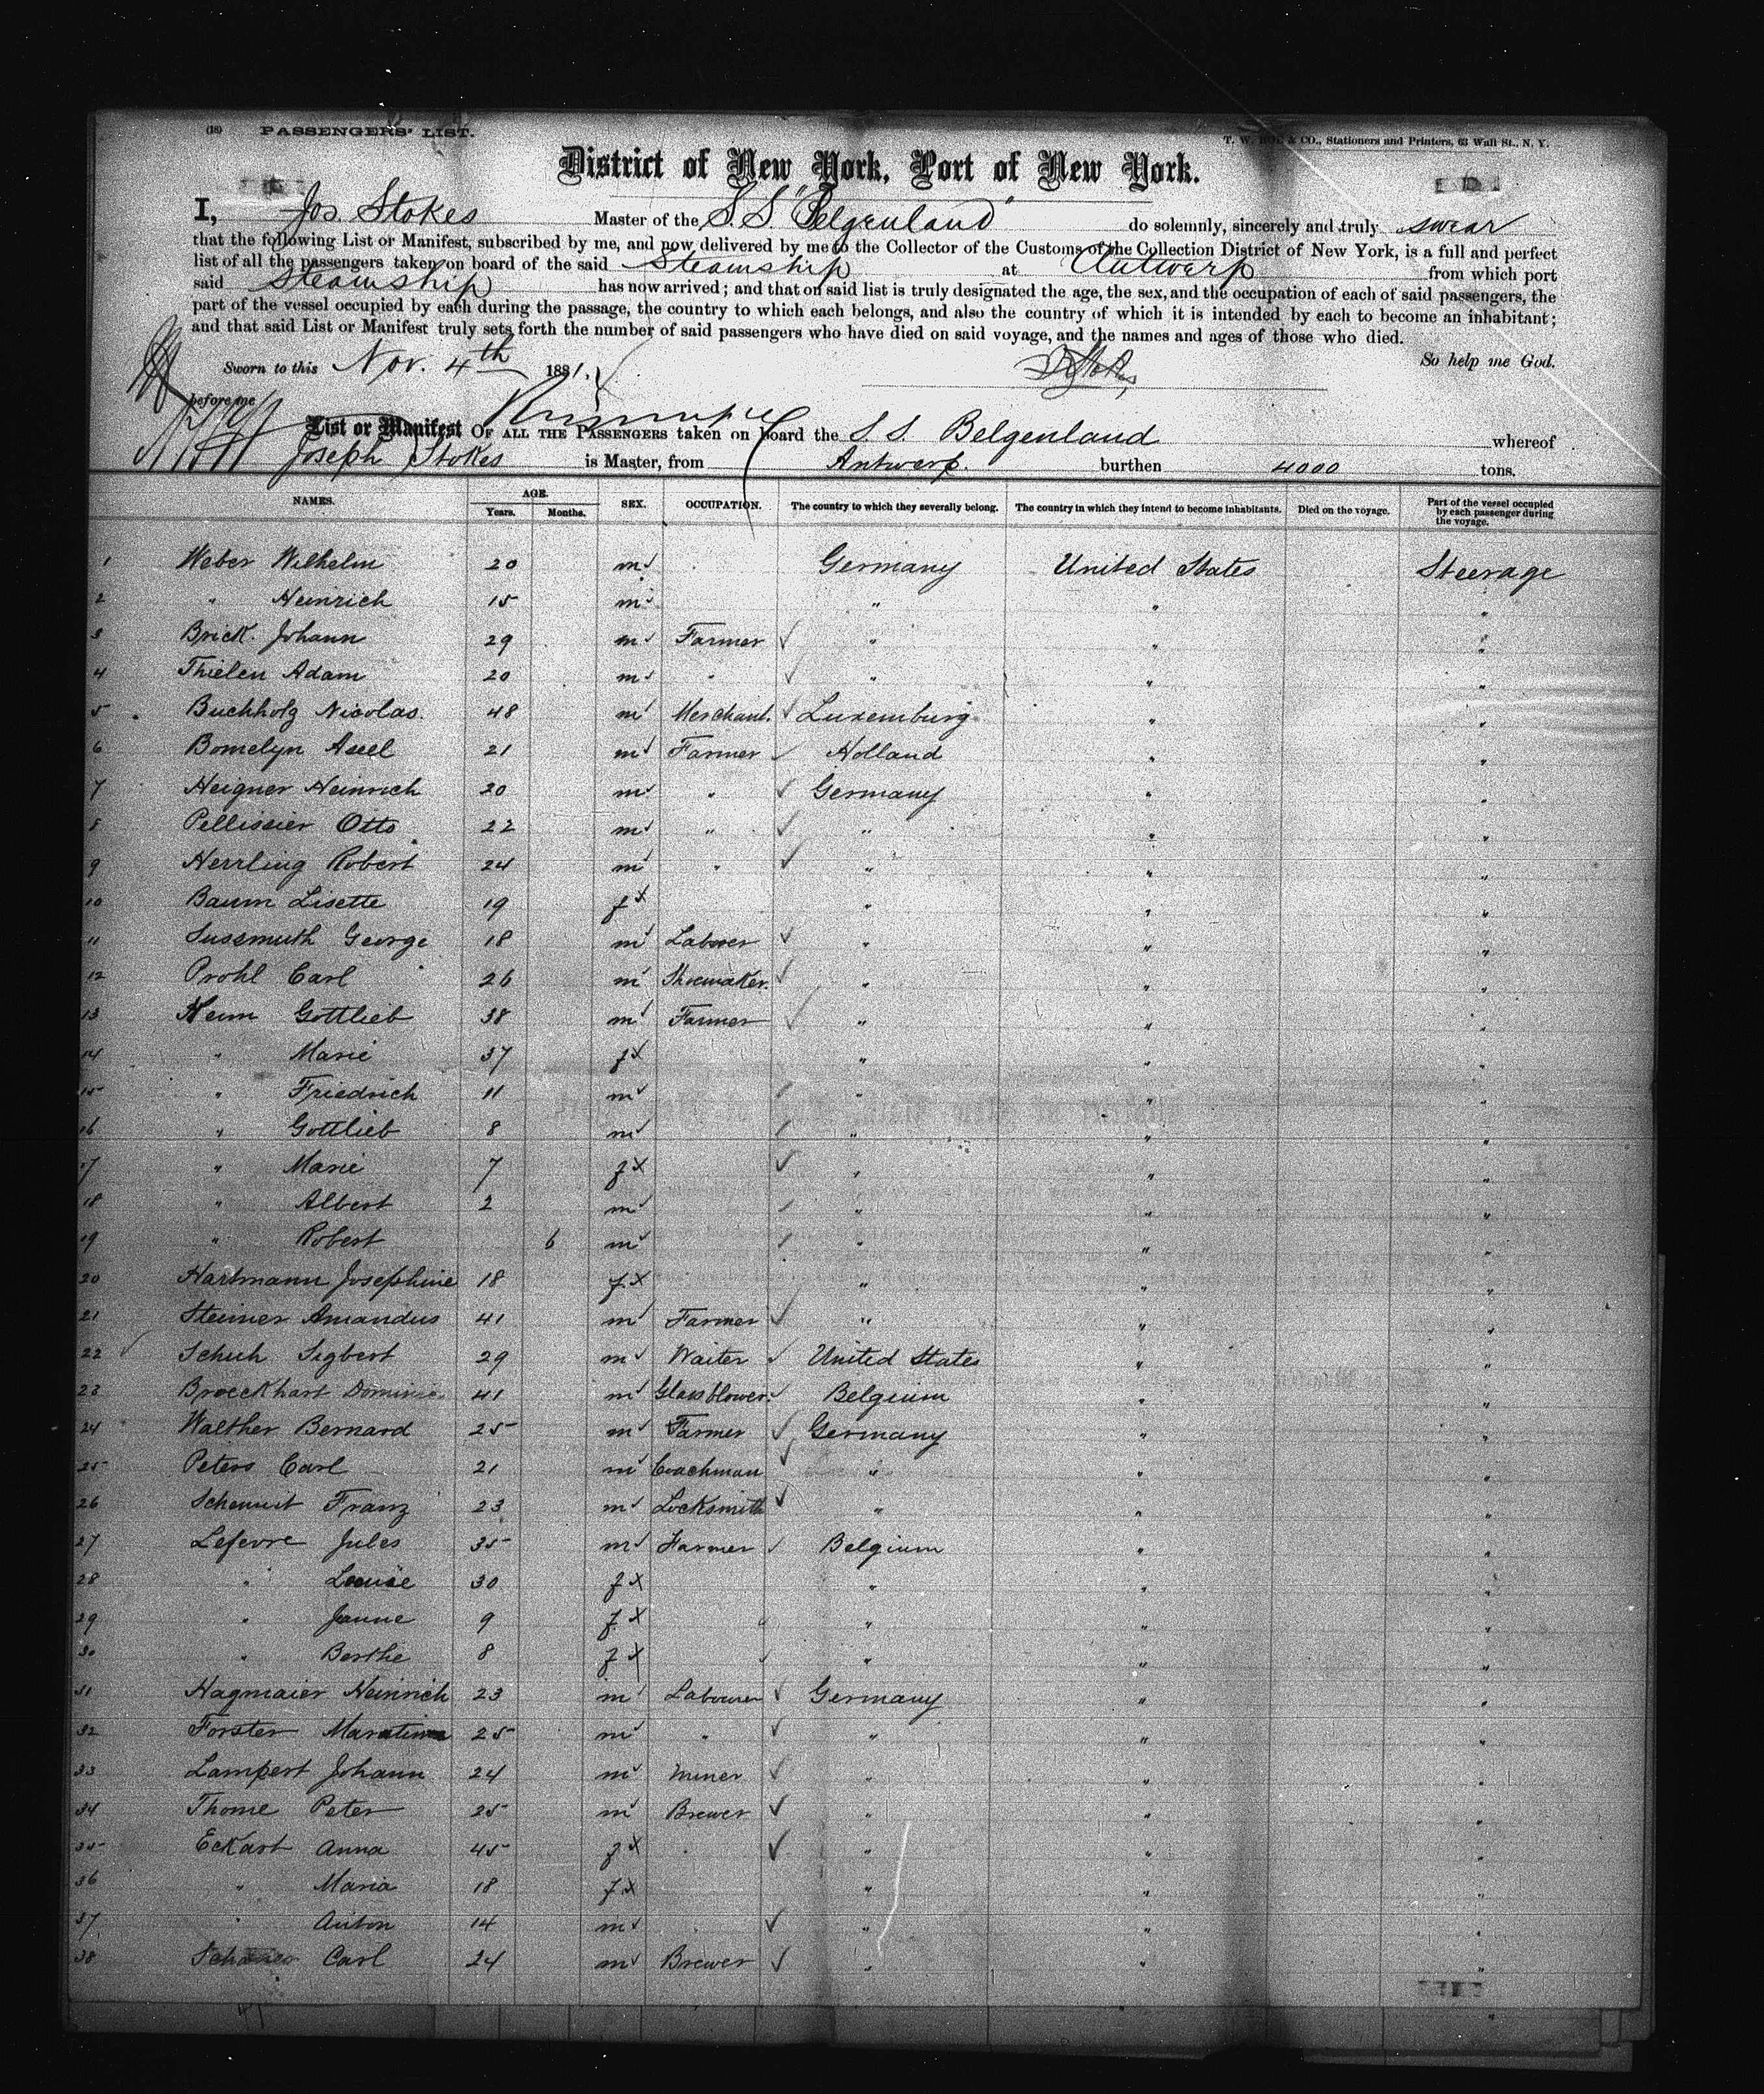 (18) PASSENGERS' LIST.
T. W. & CO., Stationers and Printers, 63 Wall St., N. Y.
District of New York, Port of New York.
I, Jos. Stokes Master of the S.S. "Belgenland" do solemnly, sincerely and truly swear
that the following List or Manifest, subscribed by me, and now delivered by me to the Collector of the Customs of the Collection District of New York, is a full and perfect
list of all the passengers taken on board of the said Steamship at Antwerp from which port
said Steamship has now arrived; and that on said list is truly designated the age, the sex, and the occupation of each of said passengers, the
part of the vessel occupied by each during the passage, the country to which each belongs, and also the country of which it is intended by each to become an inhabitant;
and that said List or Manifest truly sets forth the number of said passengers who have died on said voyage, and the names and ages of those who died.
Sworn to this Nov. 4th 1881. So help me God.
before me
List or Manifest OF ALL THE PASSENGERS taken on board the S. S. Belgenland whereof
Joseph Stokes is Master, from Antwerp. burthen 4000 tons.
NAMES. AGE. Years. Months. SEX. OCCUPATION. The country to which they severally belong. The country in which they intend to become inhabitants. Died on the voyage. Part of the vessel occupied by each passenger during the voyage.
1 Weber Wilhelm 20 m Germany United States Steerage
2 " Heinrich 15 m " " "
3 Brick Johann 29 m Farmer " " "
4 Thielen Adam 20 m " " " "
5 Buchholz Nicolas. 48 m Merchant. Luxemburg " "
6 Bomelyn 21 m Farmer Holland " "
7 Heigner Heinrich 20 m " Germany " "
8 Pellissier Otto 22 m " " " "
9 Herrling Robert 24 m " " " "
10 Baum Lisette 19 f " " "
11 Sussmuth George 18 m Laborer " " "
12 Prohl Carl 26 m Shoemaker. " " "
13 Henn Gottlieb 38 m Farmer " " "
14 " Marie 37 f " " "
15 " Friedrich 11 m " " "
16 " Gottlieb 8 m " " "
17 " Marie 7 f " " "
18 " Albert 2 m " " "
19 " Robert 6 m " " "
20 Hartmann Josephine 18 f " " "
21 Steiner Amandus 41 m Farmer " " "
22 Schuh Sigbert 29 m Waiter United States " "
23 Broeckhart Dominic 41 m Glassblower. Belgium " "
24 Walther Bernard 25 m Farmer Germany " "
25 Peters Carl 21 m Coachman " " "
26 Franz 23 m Locksmith " " "
27 Lefevre Jules 35 m Farmer Belgium " "
28 " Louise 30 f " " "
29 " Jeanne 9 f " " "
30 " Berthe 8 f " " "
31 Hagmaier Heinrich 23 m Labourer Germany " "
32 Forster 25 m " " " "
33 Lampert Johann 24 m Miner " " "
34 Thome Peter 25 m Brewer " " "
35 Eckart Anna 45 f " " "
36 " Maria 18 f " " "
37 " Anton 14 m " " "
38 Carl 24 m Brewer " " "